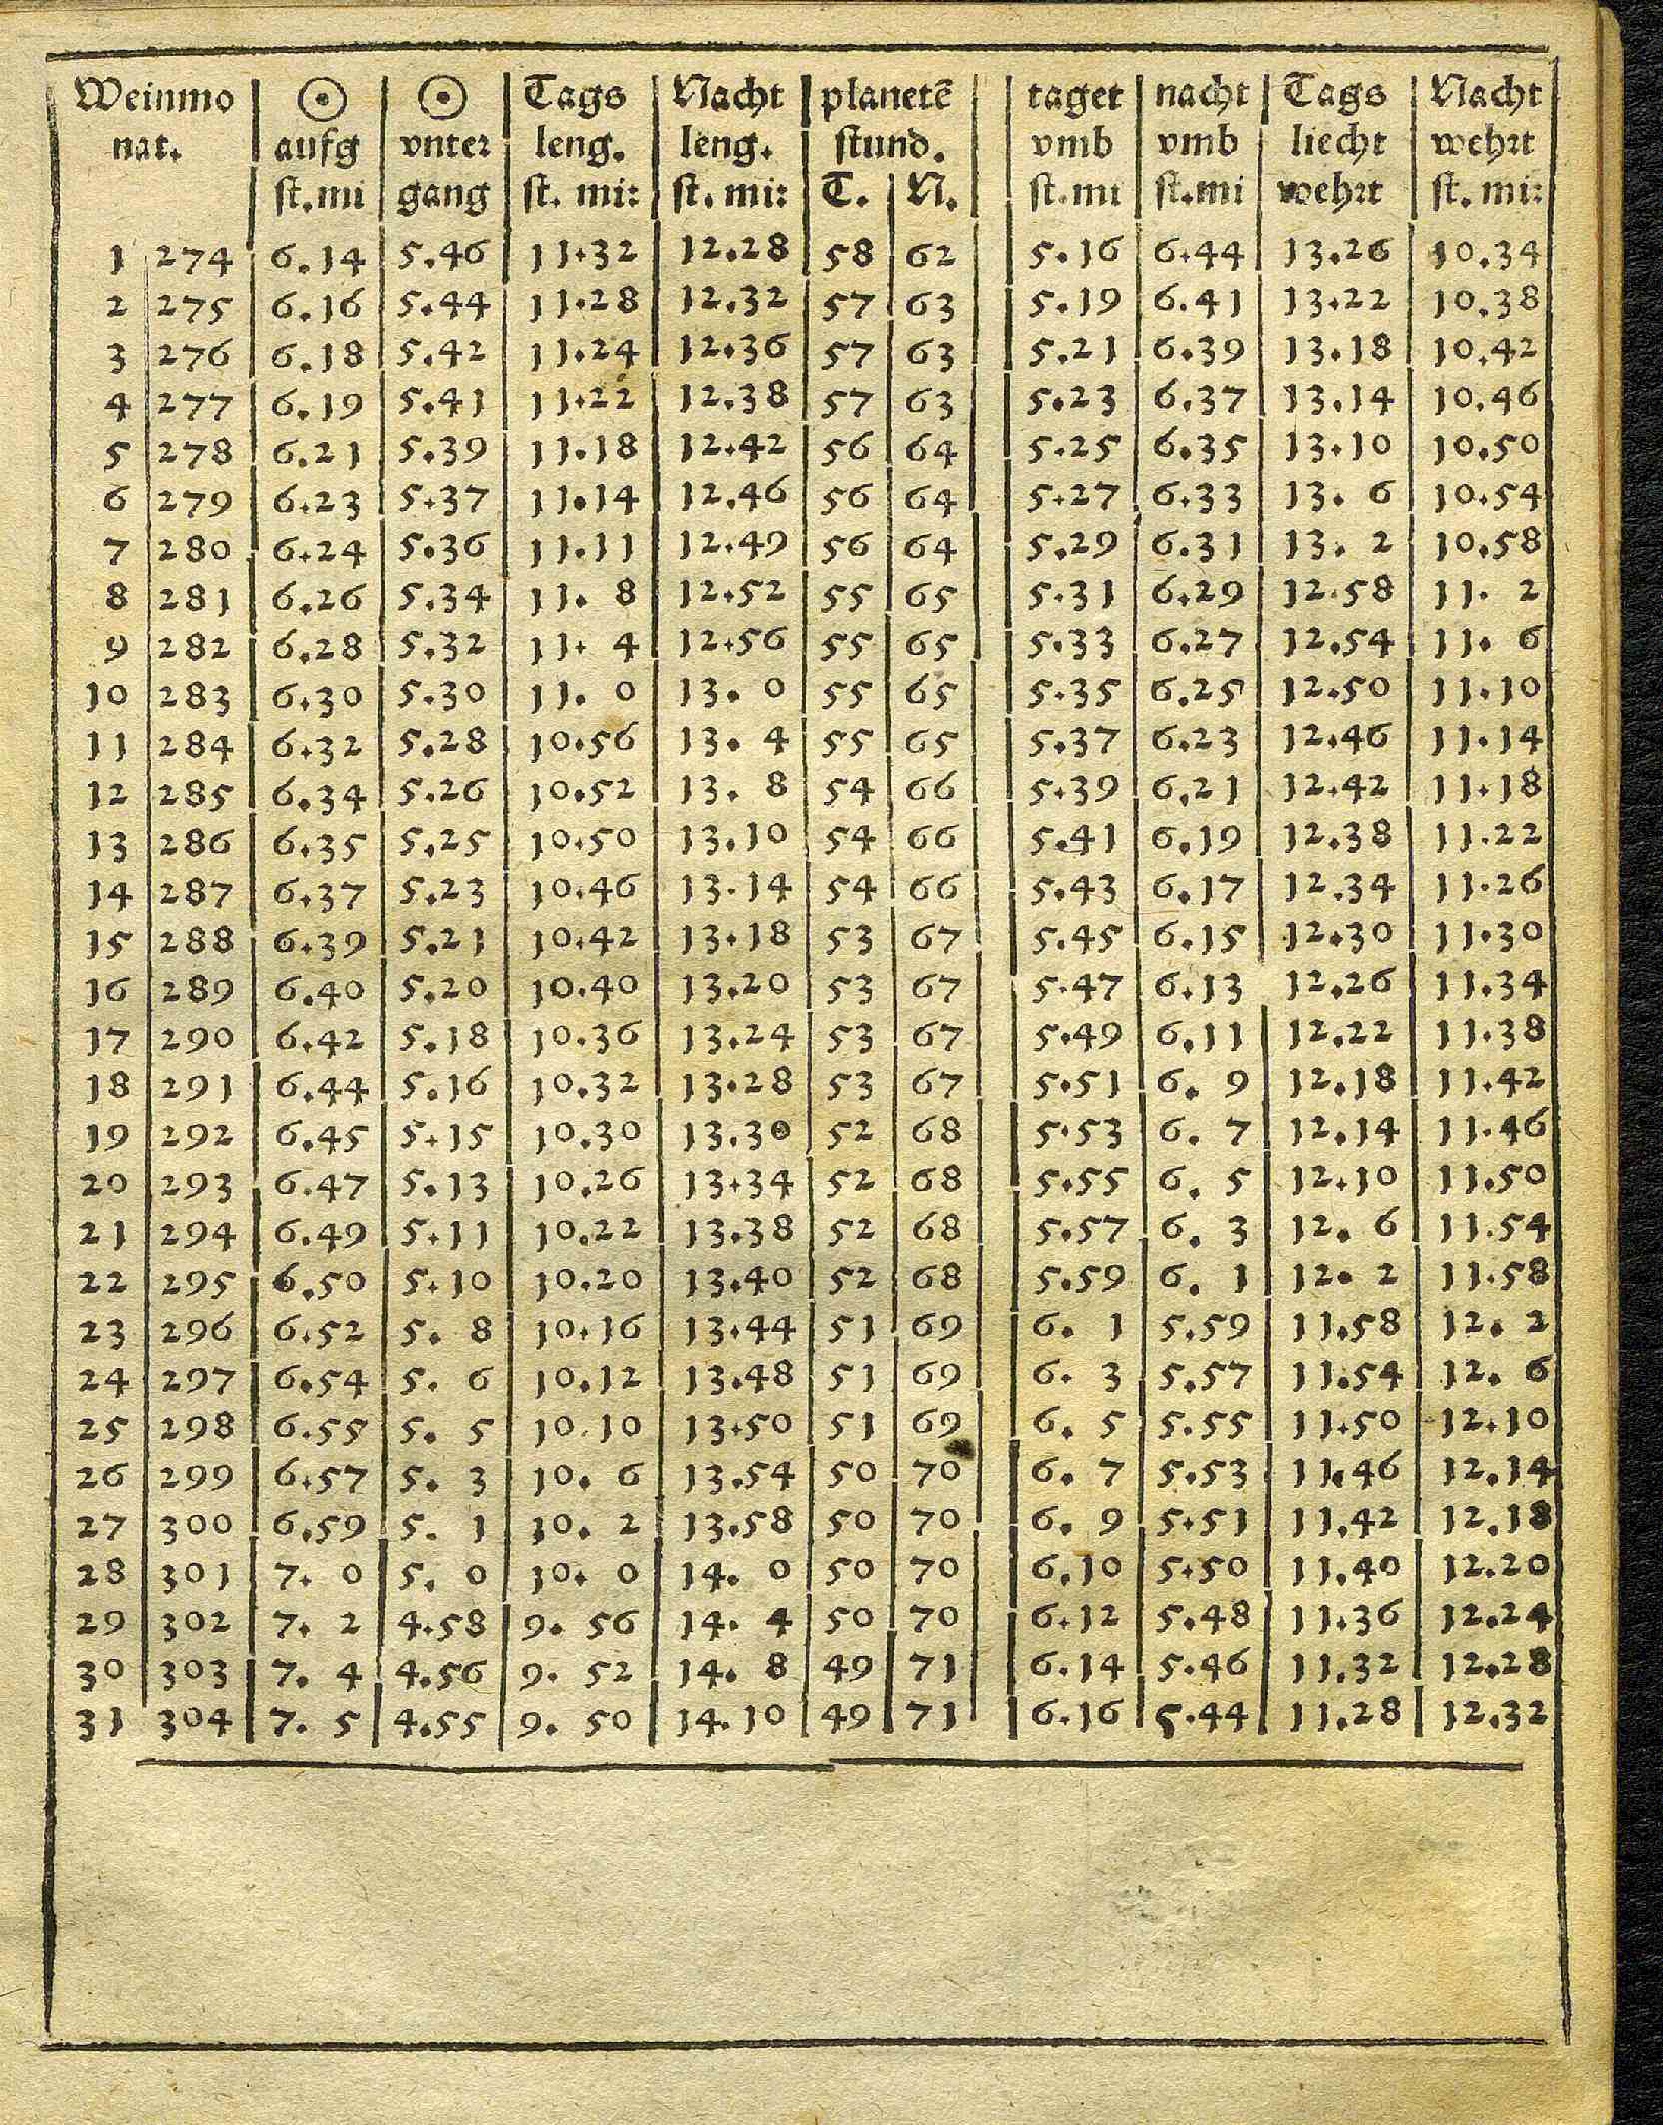 Weinmo ☉ ☉ Tags Nacht planetẽ taget nacht Tags Nacht
nat. aufg vnter leng. leng. stund. vmb vmb liecht wehrt
st.mi gang st. mi: st. mi: T. N. st.mi st.mi wehrt st. mi:
1 274 6.14 5.46 11.32 12.28 58 62 5.16 6.44 13.26 10.34
2 275 6.16 5.44 11.28 12.32 57 63 5.19 6.41 13.22 10.38
3 276 6.18 5.42 11.24 12.36 57 63 5.21 6.39 13.18 10.42
4 277 6.19 5.41 11.22 12.38 57 63 5.23 6.37 13.14 10.46
5 278 6.21 5.39 11.18 12.42 56 64 5.25 6.35 13.10 10.50
6 279 6.23 5.37 11.14 12.46 56 64 5.27 6.33 13. 6 10.54
7 280 6.24 5.36 11.11 12.49 56 64 5.29 6.31 13. 2 10.58
8 281 6.26 5.34 11. 8 12.52 55 65 5.31 6.29 12.58 11. 2
9 282 6.28 5.32 11. 4 12.56 55 65 5.33 6.27 12.54 11. 6
10 283 6.30 5.30 11. 0 13. 0 55 65 5.35 6.25 12.50 11.10
11 284 6.32 5.28 10.56 13. 4 55 65 5.37 6.23 12.46 11.14
12 285 6.34 5.26 10.52 13. 8 54 66 5.39 6.21 12.42 11.18
13 286 6.35 5.25 10.50 13.10 54 66 5.41 6.19 12.38 11.22
14 287 6.37 5.23 10.46 13.14 54 66 5.43 6.17 12.34 11.26
15 288 6.39 5.21 10.42 13.18 53 67 5.45 6.15 12.30 11.30
16 289 6.40 5.20 10.40 13.20 53 67 5.47 6.13 12.26 11.34
17 290 6.42 5.18 10.36 13.24 53 67 5.49 6.11 12.22 11.38
18 291 6.44 5.16 10.32 13.28 53 67 5.51 6. 9 12.18 11.42
19 292 6.45 5.15 10.30 13.30 52 68 5.53 6. 7 12.14 11.46
20 293 6.47 5.13 10.26 13.34 52 68 5.55 6. 5 12.10 11.50
21 294 6.49 5.11 10.22 13.38 52 68 5.57 6. 3 12. 6 11.54
22 295 6.50 5.10 10.20 13.40 52 68 5.59 6. 1 12. 2 11.58
23 296 6.52 5. 8 10.16 13.44 51 69 6. 1 5.59 11.58 12. 2
24 297 6.54 5. 6 10.12 13.48 51 69 6. 3 5.57 11.54 12. 6
25 298 6.55 5. 5 10.10 13.50 51 69 6. 5 5.55 11.50 12.10
26 299 6.57 5. 3 10. 6 13.54 50 70 6. 7 5.53 11.46 12.14
27 300 6.59 5. 1 10. 2 13.58 50 70 6. 9 5.51 11.42 12.18
28 301 7. 0 5. 0 10. 0 14. 0 50 70 6.10 5.50 11.40 12.20
29 302 7. 2 4.58 9. 56 14. 4 50 70 6.12 5.48 11.36 12.24
30 303 7. 4 4.56 9. 52 14. 8 49 71 6.14 5.46 11.32 12.28
31 304 7. 5 4.55 9. 50 14.10 49 71 6.16 5.44 11.28 12.32